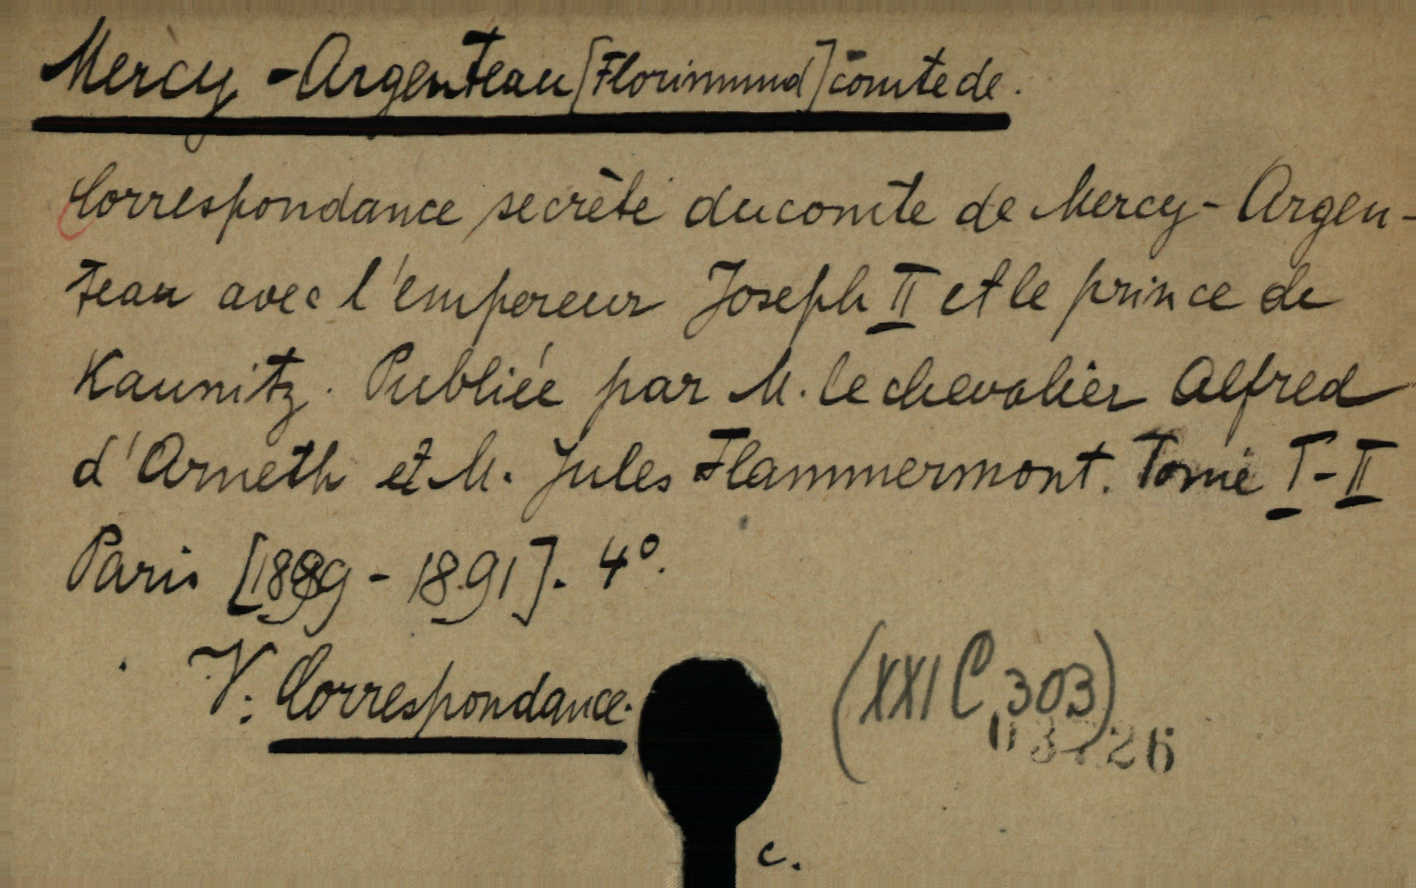 Mercy-Argenteau [Florimund] comte de.
Correspondance secrète du comte de Mercy-Argen-
teau avec l'empereur Joseph II et le prince de
Kaunitz. Publiée par M. le chevalier Alfred
d'Arneth et M. Jules Flammermont. Tome I-II
Paris [1889-1891]. 4°.
V: Correspondance.
(XXI C 303)
c.